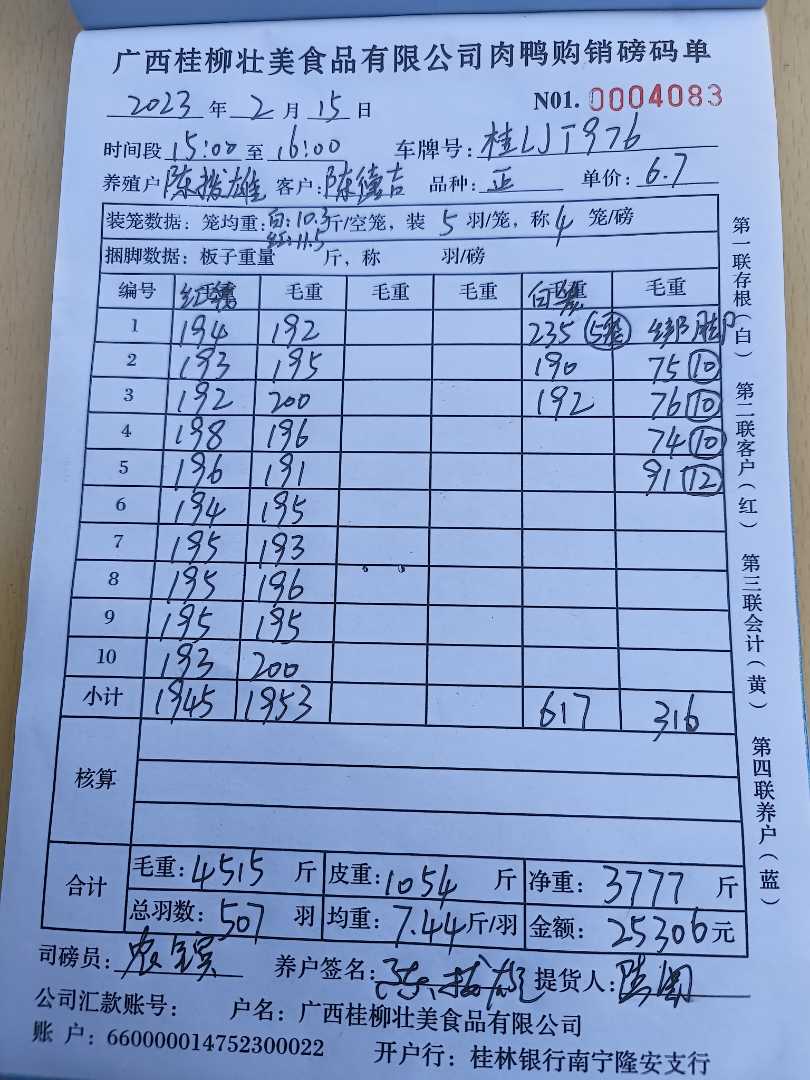 广西桂柳壮美食品有限公司肉鸭购销磅码单
2023 年 2 月 15 日 N01. 0004083
时间段 15:00 至 16:00 车牌号: 桂LJT976
养殖户 陈拨雄 客户: 陈德吉 品种: 正 单价: 6.7
装笼数据: 笼均重: 白:10.3 红:11.5 斤/空笼, 装 5 羽/笼, 称 4 笼/磅
捆脚数据: 板子重量 斤, 称 羽/磅
编号 红 毛重 毛重 毛重 白 毛重
1 194 192 235 绑脚
2 193 195 190 75 10
3 192 200 192 76 10
4 198 196 74 10
5 196 191 91 12
6 194 195
7 195 193
8 195 196
9 195 195
10 193 200
小计 1945 1953 617 316
核算
合计 毛重: 4515 斤 皮重: 1054 斤 净重: 3777 斤
总羽数: 507 羽 均重: 7.44 斤/羽 金额: 25306 元
司磅员: 养户签名: 陈拨雄 提货人:
公司汇款账号: 户名: 广西桂柳壮美食品有限公司
账 户: 660000014752300022 开户行: 桂林银行南宁隆安支行
第一联存根(白) 第二联客户(红) 第三联会计(黄) 第四联养户(蓝)